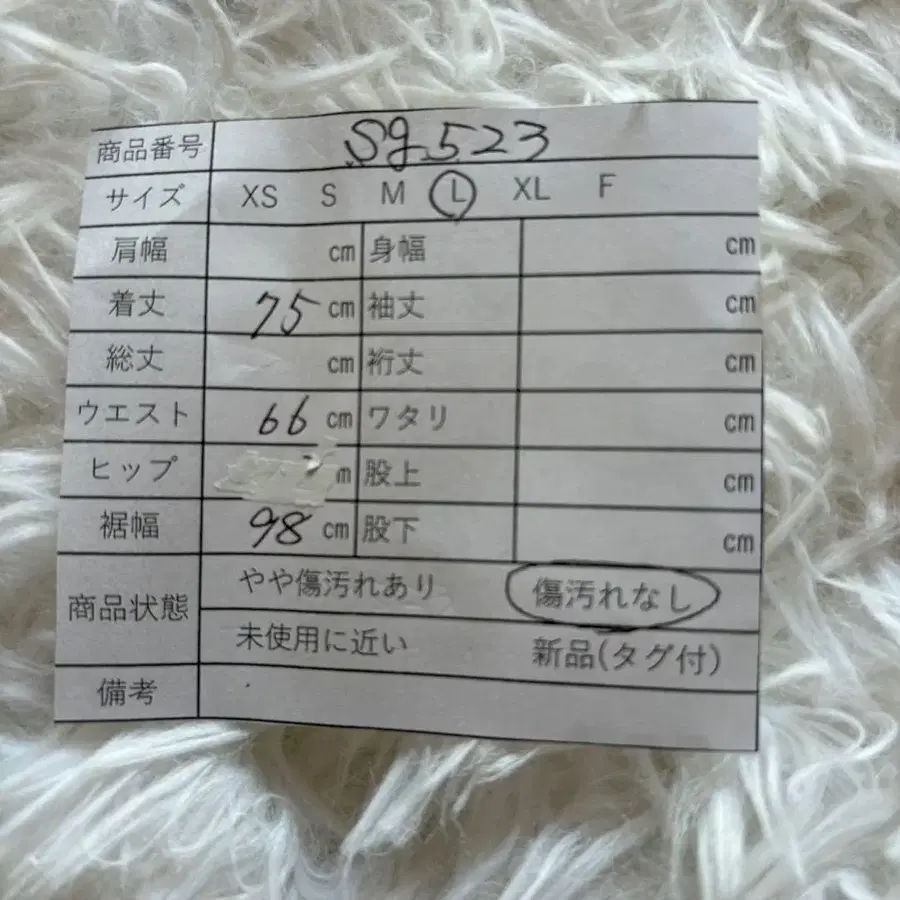 商品番号 Sg523
サイズ XS S M L XL F
肩幅 cm 身幅 cm
着丈 75 cm 袖丈 cm
総丈 cm 裄丈 cm
ウエスト 66 cm ワタリ cm
ヒップ m 股上 cm
裾幅 98 cm 股下 cm
商品状態 やや傷汚れあり 傷汚れなし
未使用に近い 新品(タグ付)
備考